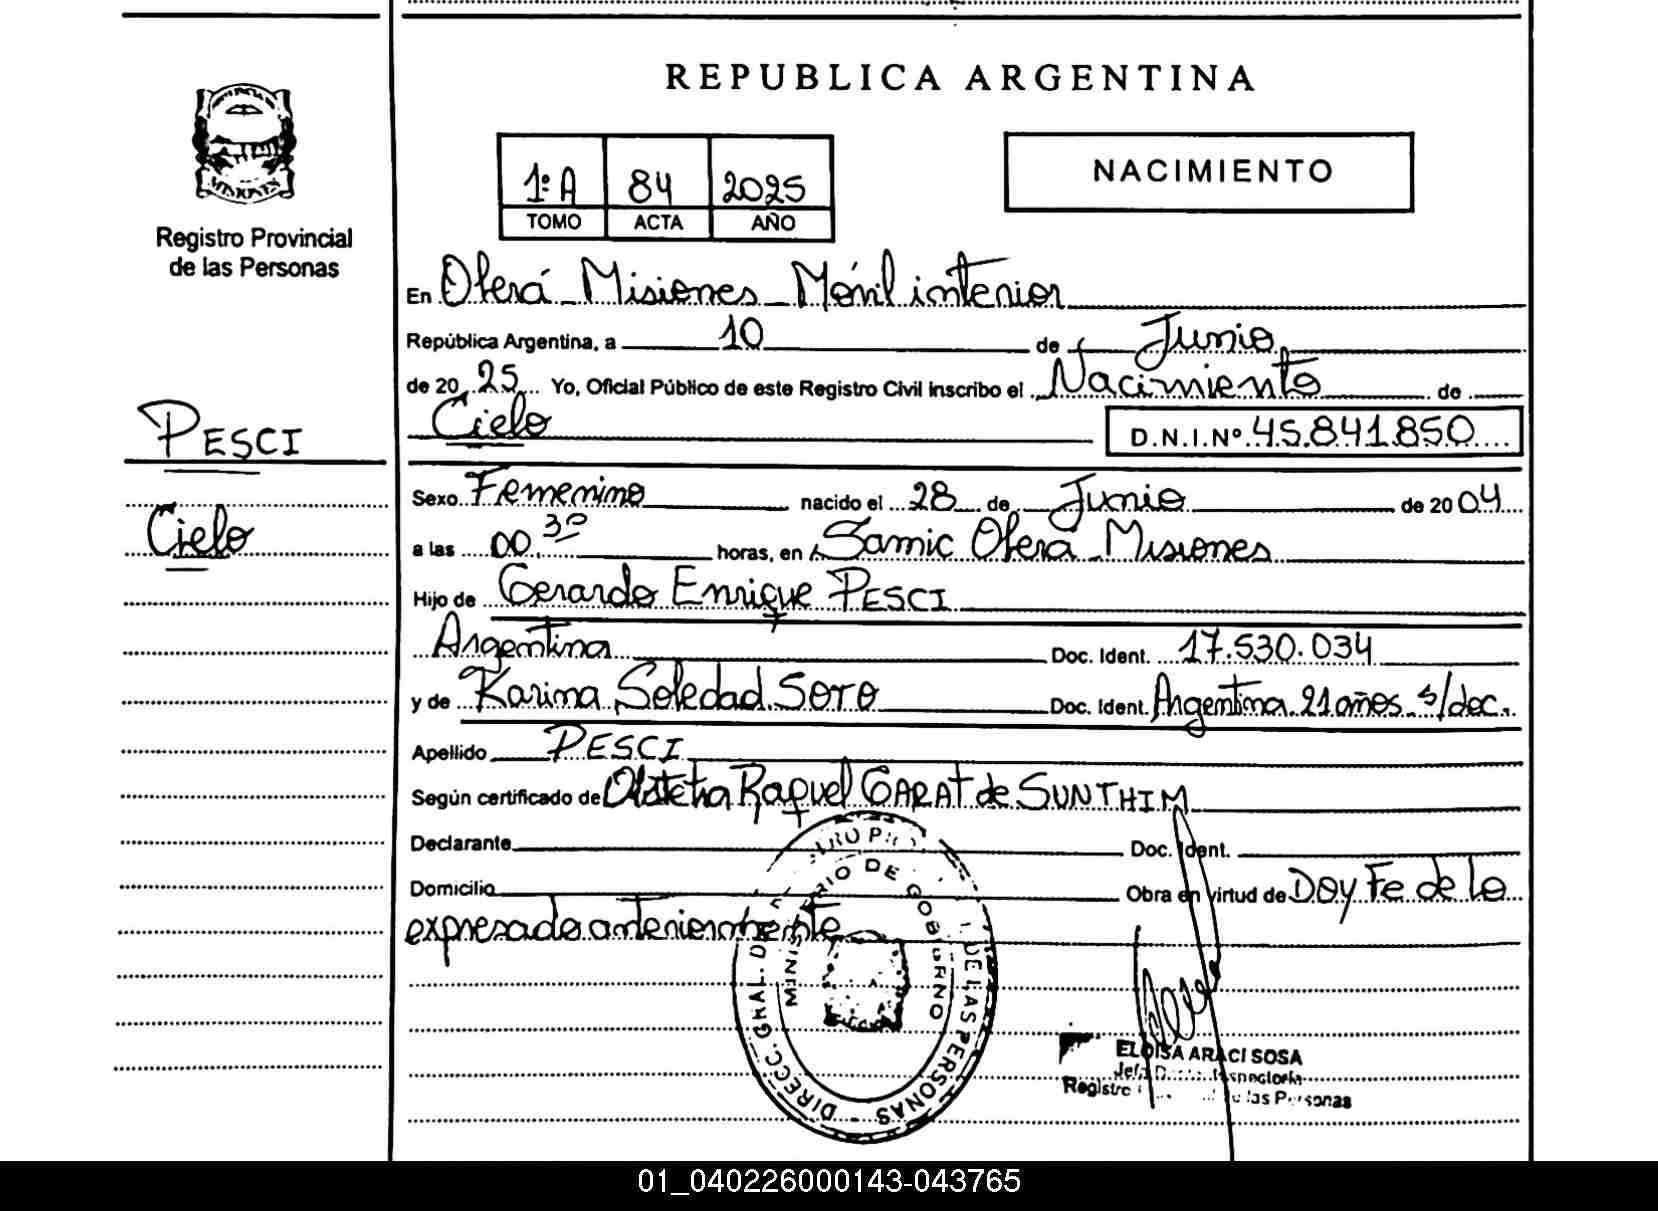 REPUBLICA ARGENTINA
1º A 84 2025
TOMO ACTA AÑO
NACIMIENTO
MISIONES
Registro Provincial
de las Personas
PESCI
Cielo
En Oberá Misiones Móvil interior
República Argentina, a 10 de Junio
de 20 25 Yo, Oficial Público de este Registro Civil inscribo el Nacimiento de
Cielo D.N.I.Nº 45.841.850
Sexo Femenino nacido el 28 de Junio de 20 04
a las 00,30 horas, en Samic Oberá Misiones
Hijo de Gerardo Enrique PESCI
Argentina Doc. Ident. 17.530.034
y de Karina Soledad SOTO Doc. Ident. Argentina 21 años s/doc.
Apellido PESCI
Según certificado de Obstetra Raquel GARAT de SUNTHIM
Declarante Doc. Ident.
Domicilio Obra en virtud de Doy Fe de lo
expresado anteriormente
DIRECC. GRAL. DE LAS PERSONAS
MINISTERIO DE GOBIERNO
ELOISA ARACI SOSA
Registro de las Personas
01_040226000143-043765